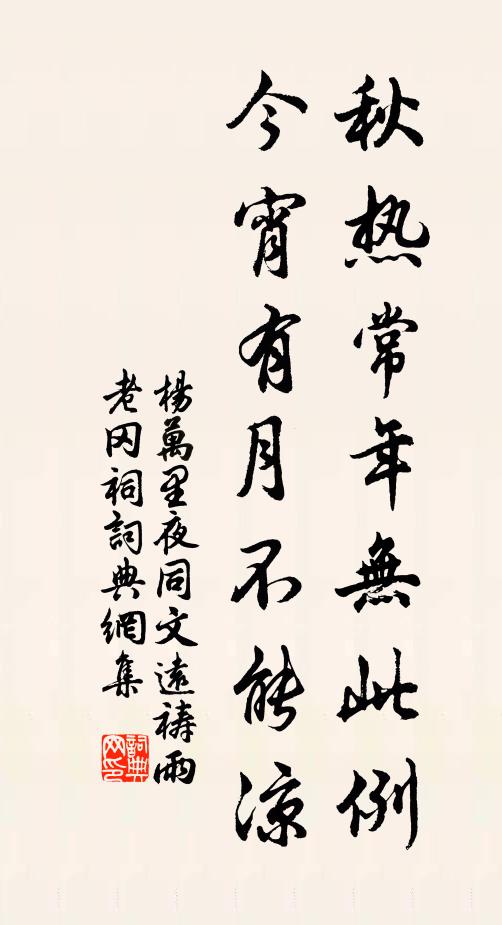 秋热常年無此例
今宵有月不能凉
楊萬里夜同文遠禱雨
老冈祠詞典網集
詞典网印